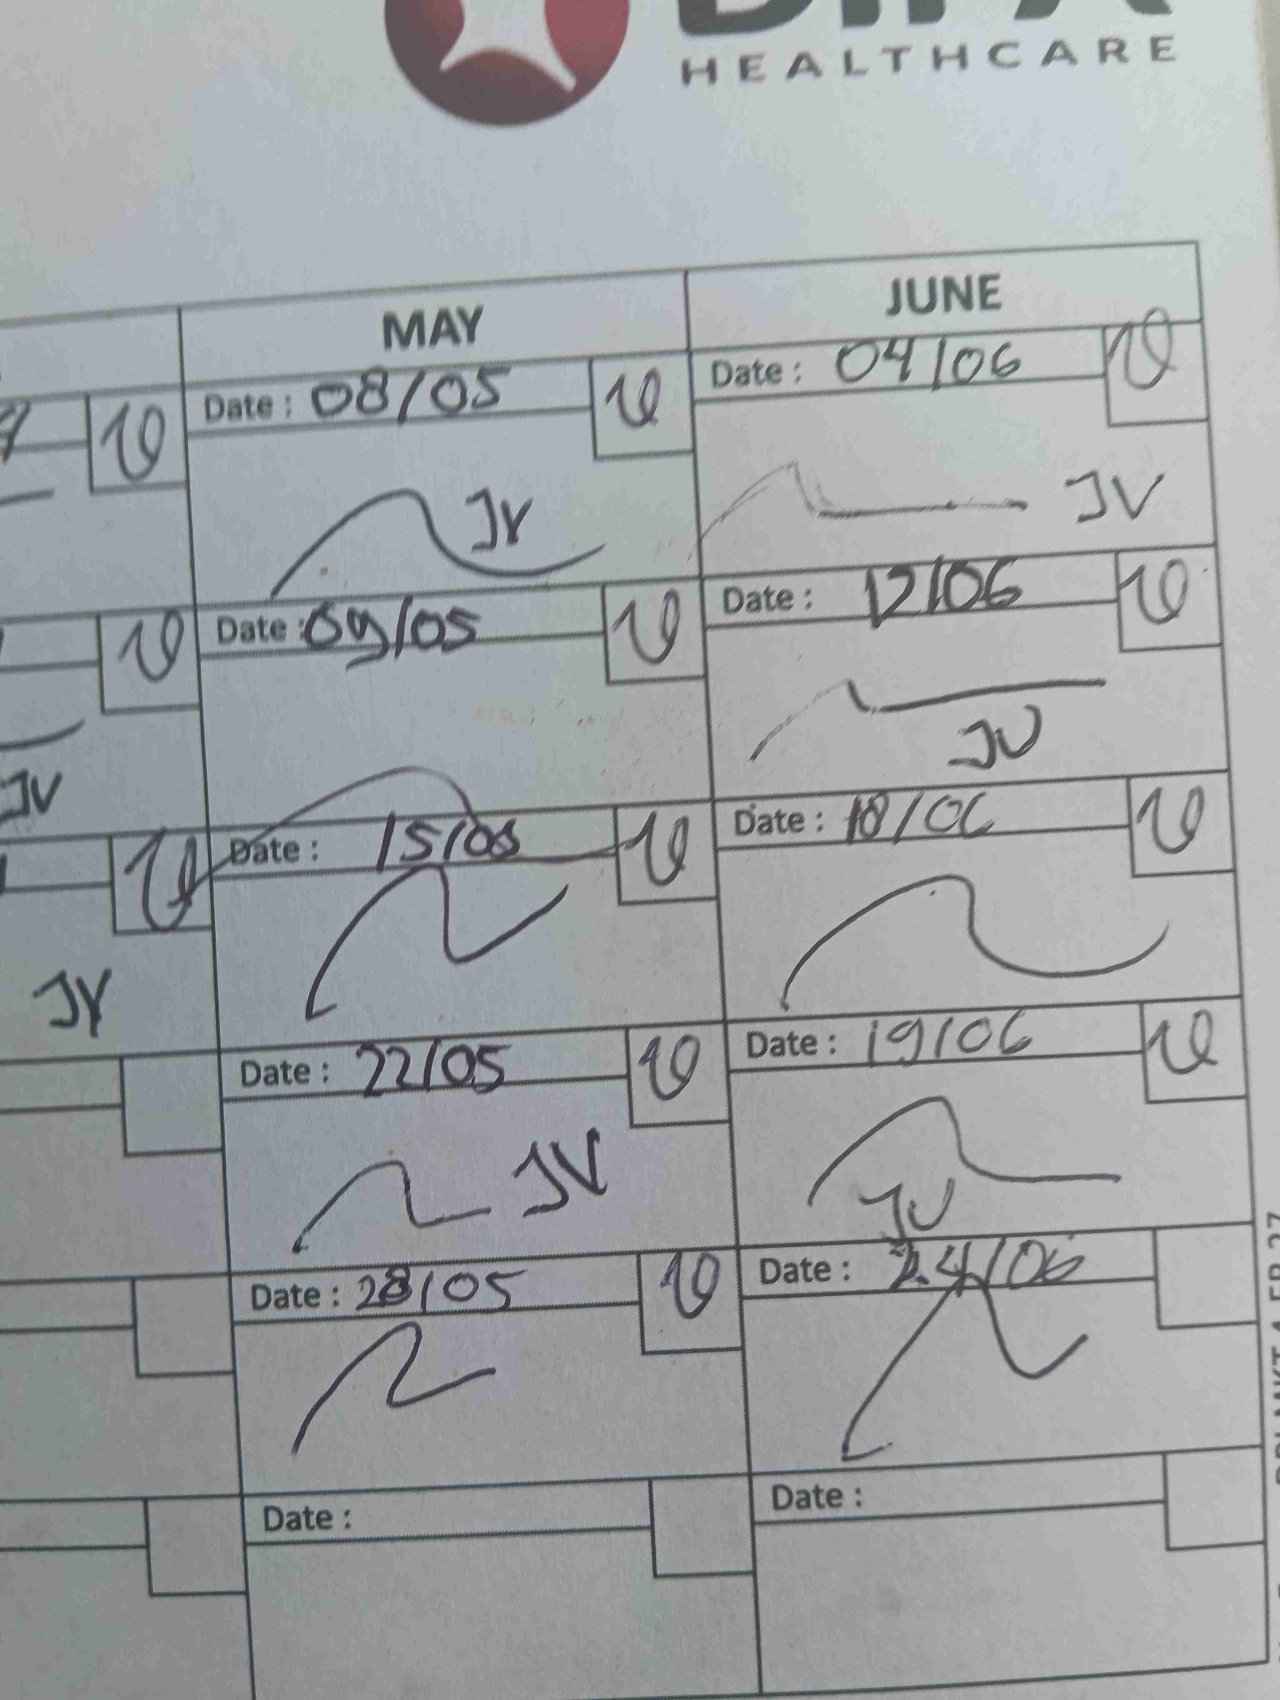 HEALTHCARE
MAY
JUNE
Date : 08/05
Date : 04/06
JV
JV
Date : 09/05
Date : 12/06
JV
JV
Date : 15/05
Date : 18/06
JV
Date : 22/05
Date : 19/06
JV
JV
Date : 28/05
Date : 24/06
Date :
Date :